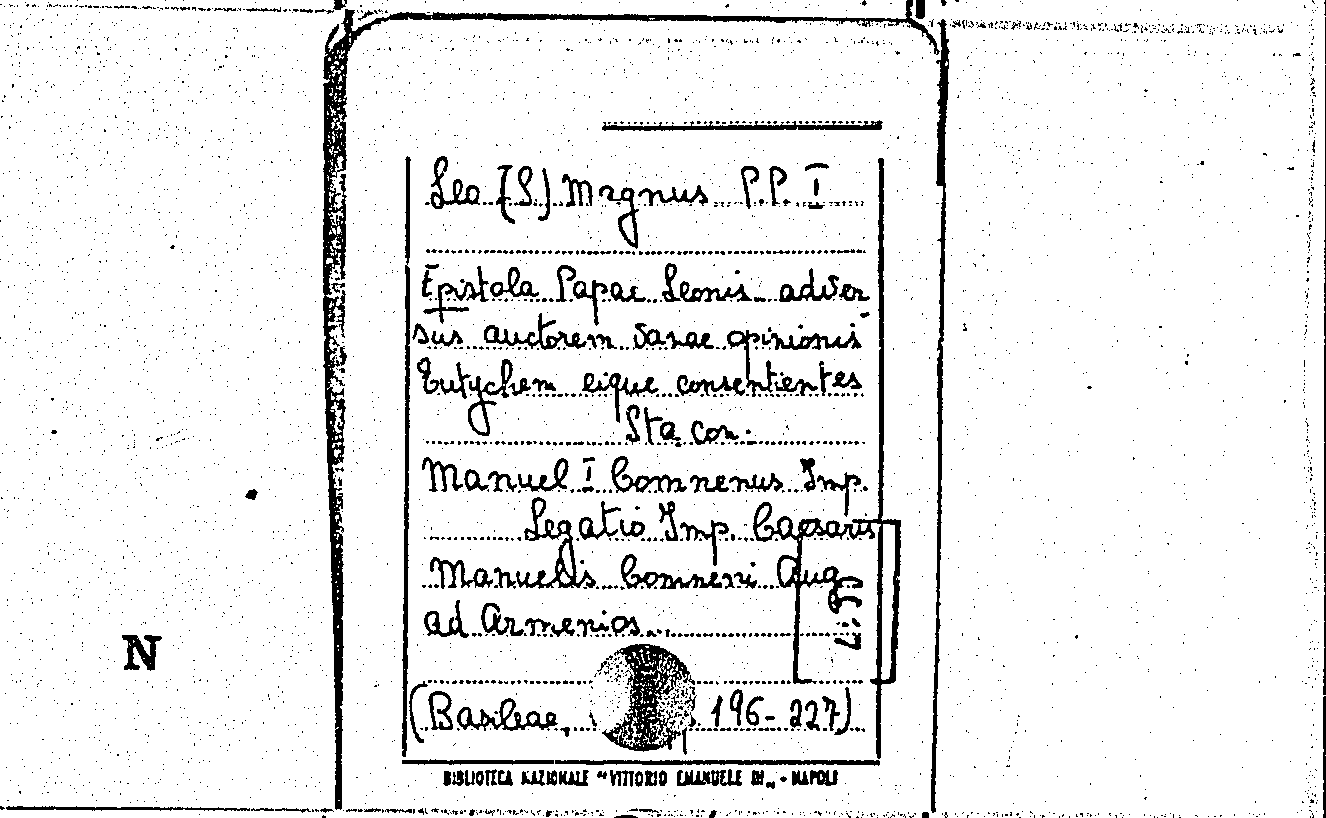 Leo (S.) Magnus P.P. I
Epistola Papae Leonis adver
sus auctorem vanae opinionis
Eutychem eique consentientes
Sta con:
Manuel I Comnenus Imp.
Legatio Imp. Caesaris
Manuelis Comneni Aug
ad Armenios..
(Basileae, 196-227)
N
BIBLIOTECA NAZIONALE "VITTORIO EMANUELE III„ - NAPOLI